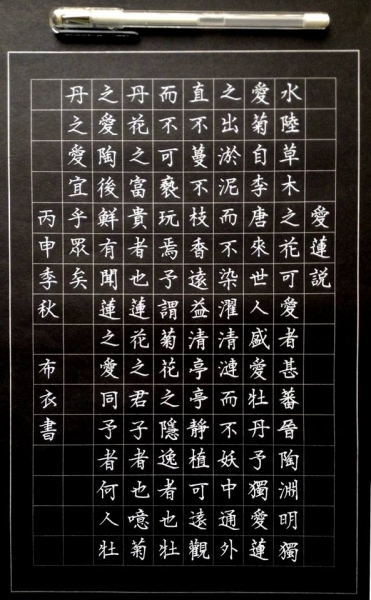 愛蓮説
水陸草木之花可愛者甚蕃晉陶淵明獨
愛菊自李唐來世人盛愛牡丹予獨愛蓮
之出淤泥而不染濯清漣而不妖中通外
直不蔓不枝香遠益清亭亭靜植可遠觀
而不可褻玩焉予謂菊花之隱逸者也牡
丹花之富貴者也蓮花之君子者也噫菊
之愛陶後鮮有聞蓮之愛同予者何人牡
丹之愛宜乎眾矣
丙申季秋 布衣書